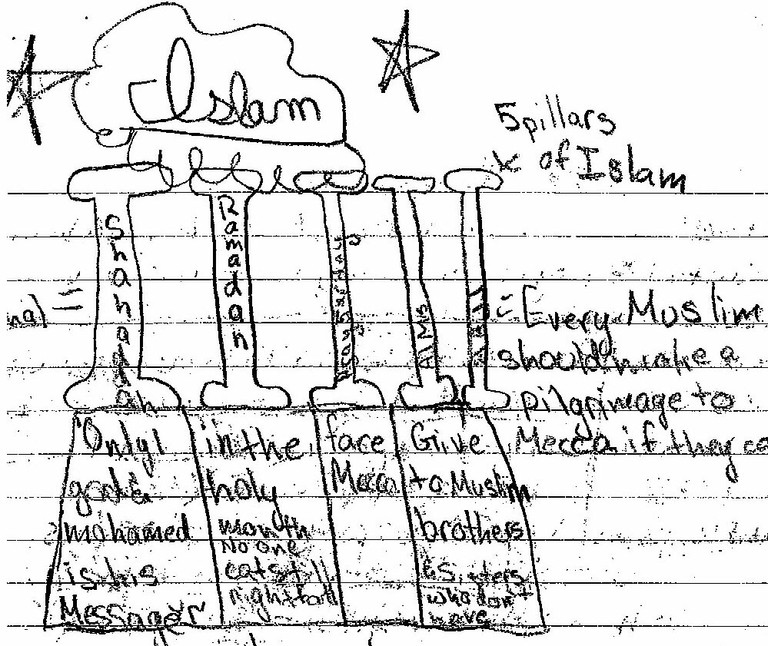 Islam
5 pillars
of Islam
Shahadah
Ramadan
Almis
= Every Muslim
should make a
pilgrimage to
Mecca if they
Only 1
god &
mohamed
is his
Messager
in the
holy
month
no one
eats till
face
Mecca
Give
to Muslim
brothers
& sisters
who don't
have